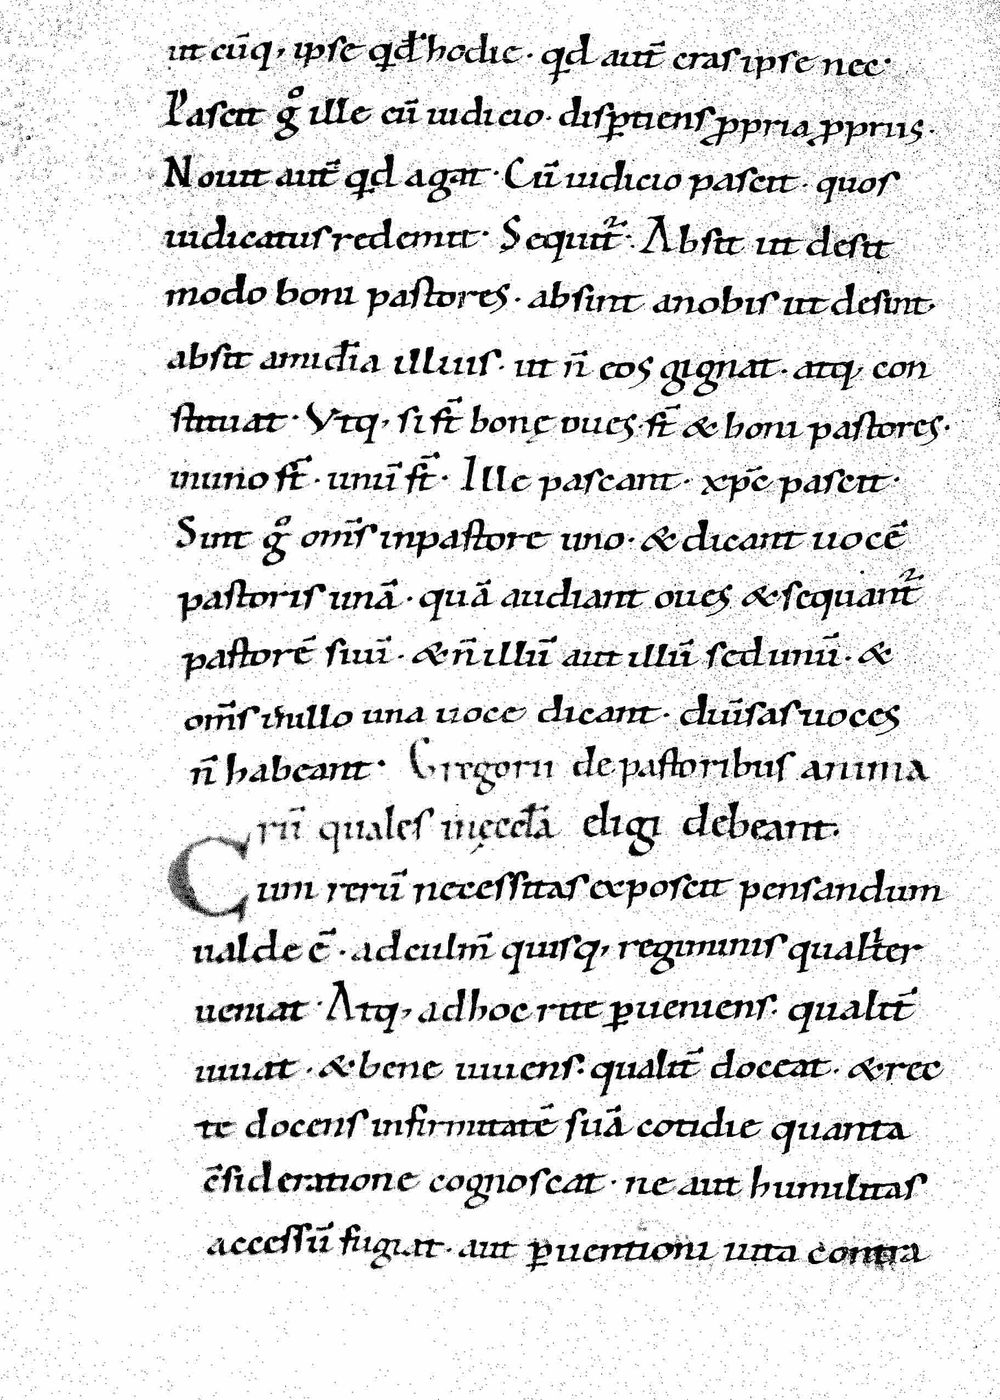 ut cū q; ipse qđ hodie · qd aut̄ cras ipse nec ·
Pascit g̊ ille cū iudicio · disꝑtiens ꝓpria ꝓpriis ·
Nouit aut̄ qd agat · Cū iudicio pascit · quos
iudicatus redemit · Sequit̄ · Absit ut desit
modo boni pastores · absint a nobis ut desint ·
absit a mīdia illius · ut n̄ eos gignat · atq; con
stituat · Vtq; si st̄ bonę oues · st̄ & boni pastores ·
in uno st̄ · unū st̄ · Ille pascant · xp̄c pascit ·
Sint g̊ om̄s in pastore uno · & dicant uocē
pastoris unā · quā audiant oues & sequant̄
pastorē suū · & n̄ illū aut illū sed unū · &
om̄s in illo una uoce dicant · diūsas uoces
n̄ habeant · Gregorii de pastoribus anima
rū quales in ęccła eligi debeant ·
Cum rerū necessitas exposcit pensandum
ualde ē · ad culm̄ quisq; regiminis qualiter
ueniat · Atq; ad hoc rite ꝑueniens · qualit̄
uiuat · & bene uiuens · qualit̄ doceat · & rec
te docens infirmitatē suā cotidie quanta
c̄sideratione cognoscat · ne aut humilitas
accessū fugiat · aut ꝑuentioni uita contra